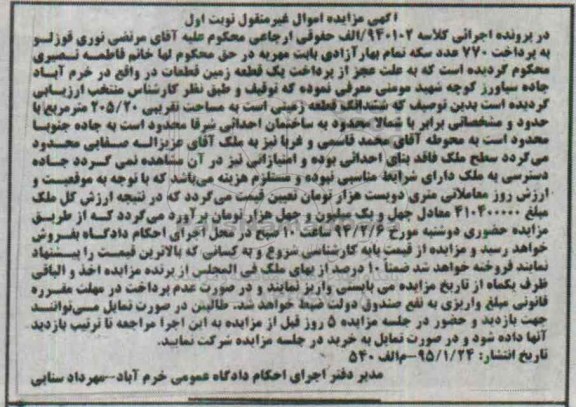 آگهی مزایده اموال غیرمنقول نوبت اول
در پرونده اجرائی کلاسه ۹۴۰۱۰۲/الف حقوقی ارجاعی محکوم علیه آقای مرتضی نوری قوزلو
به پرداخت ۷۷۰ عدد سکه تمام بهار آزادی بابت مهریه در حق محکوم لها خانم فاطمه نصیری
محکوم گردیده است که به علت عجز از پرداخت یک قطعه زمین قطعات در واقع در خرم آباد
جاده سپاورز کوچه شهید مومنی معرفی نموده که توقیف و طبق نظر کارشناس منتخب ارزیابی
گردیده است بدین توصیف که ششدانگ قطعه زمینی است به مساحت تقریبی ۲۰۵/۲۰ مترمربع با
حدود و مشخصاتی برابر با شمالا محدود به ساختمان احداثی شرقا محدود است به جاده جنوبا
محدود است به محوطه آقای محمد قاسمی و غربا نیز به ملک آقای عزیزاله صفایی محدود
می گردد سطح ملک فاقد بنای احداثی بوده و امتیازاتی نیز در آن مشاهده نمی گردد جاده
دسترسی به ملک دارای شرایط مناسبی نبوده و مستلزم هزینه می‌باشد که با توجه به موقعیت و
ارزش روز معاملاتی متری دویست هزار تومان تعیین قیمت می‌گردد که در نتیجه ارزش کل ملک
مبلغ ۴۱۰۴۰۰۰۰۰ معادل چهل و یک میلیون و چهل هزار تومان برآورد می گردد که از طریق
مزایده حضوری دوشنبه مورخ ۹۴/۲/۶ ساعت ۱۰ صبح در محل اجرای احکام دادگاه بفروش
خواهد رسید و مزایده از قیمت پایه کارشناسی شروع و به کسانی که بالاترین قیمت را پیشنهاد
نمایند فروخته خواهد شد ضمنا ۱۰ درصد از بهای ملک فی المجلس از برنده مزایده اخذ و الباقی
ظرف یکماه از تاریخ مزایده می بایستی واریز نمایند و در صورت عدم پرداخت در مهلت مقرره
قانونی مبلغ واریزی به نفع صندوق دولت ضبط خواهد شد. طالبین در صورت تمایل می‌توانند
جهت بازدید و حضور در جلسه مزایده ۵ روز قبل از مزایده به این اجرا مراجعه تا ترتیب بازدید
آنها داده شود و در صورت تمایل به خرید در جلسه مزایده شرکت نمایید.
تاریخ انتشار: ۹۵/۱/۲۴-م‌الف ۵۴۰
مدیر دفتر اجرای احکام دادگاه عمومی خرم آباد-مهرداد سنایی